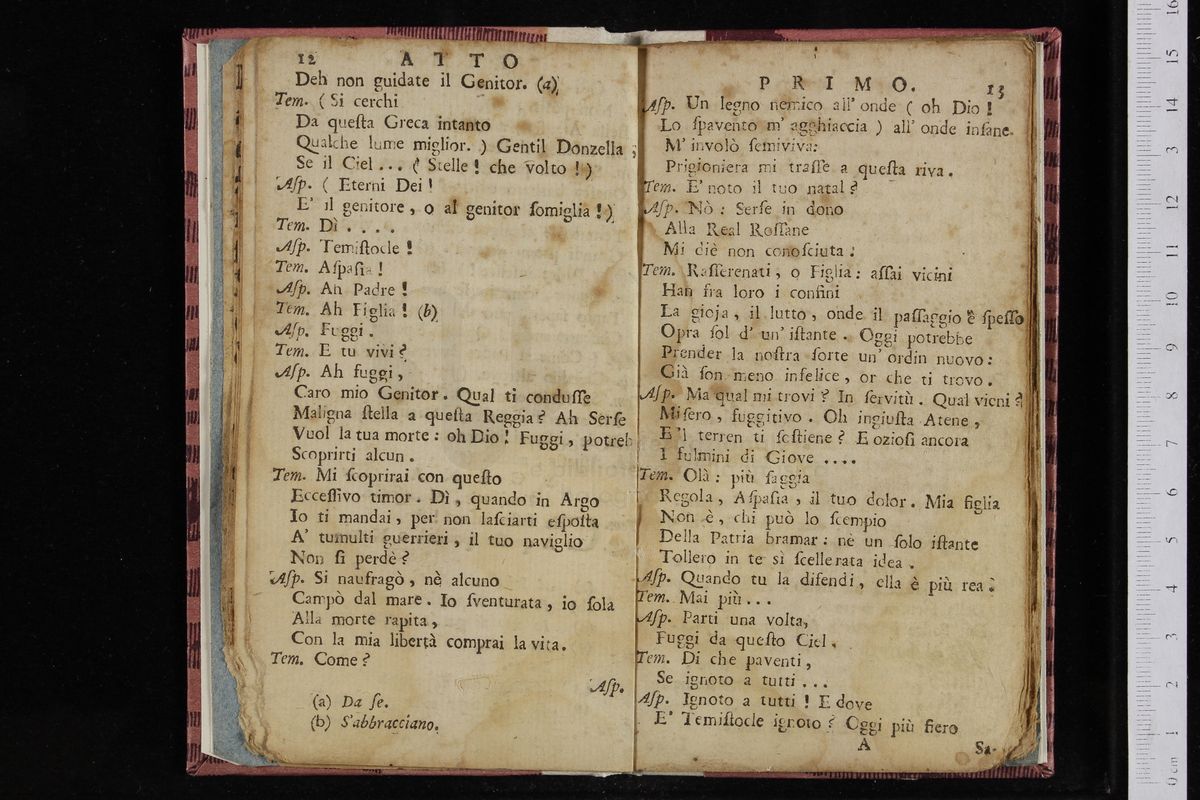 12 ATTO
Deh non guidate il Genitor. (a)
Tem. ( Si cerchi
Da queſta Greca intanto
Qualche lume miglior. ) Gentil Donzella ;
Se il Ciel ... ( Stelle ! che volto ! )
Aſp. ( Eterni Dei !
E' il genitore , o al genitor ſomiglia ! )
Tem. Dì . . . .
Aſp. Temiſtocle !
Tem. Aſpaſia !
Aſp. Ah Padre !
Tem. Ah Figlia ! (b)
Aſp. Fuggi .
Tem. E tu vivi ?
Aſp. Ah fuggi ,
Caro mio Genitor . Qual ti conduſſe
Maligna ſtella a queſta Reggia ? Ah Serſe
Vuol la tua morte : oh Dio ! Fuggi , potreb
Scoprirti alcun .
Tem. Mi ſcoprirai con queſto
Ecceſſivo timor . Dì , quando in Argo
Io ti mandai , per non laſciarti eſpoſta
A' tumulti guerrieri , il tuo naviglio
Non ſi perdè ?
Aſp. Si naufragò , nè alcuno
Campò dal mare . Io ſventurata , io ſola
Alla morte rapita ,
Con la mia libertà comprai la vita .
Tem. Come ?
Aſp.
(a) Da ſe.
(b) S'abbracciano.
PRIMO. 13
Aſp. Un legno nemico all' onde ( oh Dio !
Lo ſpavento m' agghiaccia ) all' onde inſane
M' involò ſemiviva :
Prigioniera mi traſſe a queſta riva .
Tem. E' noto il tuo natal ?
Aſp. Nò : Serſe in dono
Alla Real Roſſane
Mi diè non conoſciuta :
Tem. Raſſerenati , o Figlia : aſſai vicini
Han fra loro i confini
La gioja , il lutto , onde il paſſaggio è ſpeſſo
Opra ſol d' un' iſtante . Oggi potrebbe
Prender la noſtra ſorte un' ordin nuovo :
Già ſon meno infelice , or che ti trovo .
Aſp. Ma qual mi trovi ? In ſervitù . Qual vieni ?
Miſero , fuggitivo . Oh ingiuſta Atene ,
E 'l terren ti ſoſtiene ? E ozioſi ancora
I fulmini di Giove ....
Tem. Olà : più ſaggia
Regola , Aſpaſia , il tuo dolor . Mia figlia
Non è , chi può lo ſcempio
Della Patria bramar : nè un ſolo iſtante
Tollero in te sì ſcellerata idea .
Aſp. Quando tu la difendi , ella è più rea .
Tem. Mai più ...
Aſp. Parti una volta ,
Fuggi da queſto Ciel .
Tem. Di che paventi ,
Se ignoto a tutti ...
Aſp. Ignoto a tutti ! E dove
E' Temiſtocle ignoto ? Oggi più fiero
A Sa-
0 cm 1 2 3 4 5 6 7 8 9 10 11 12 13 14 15 16